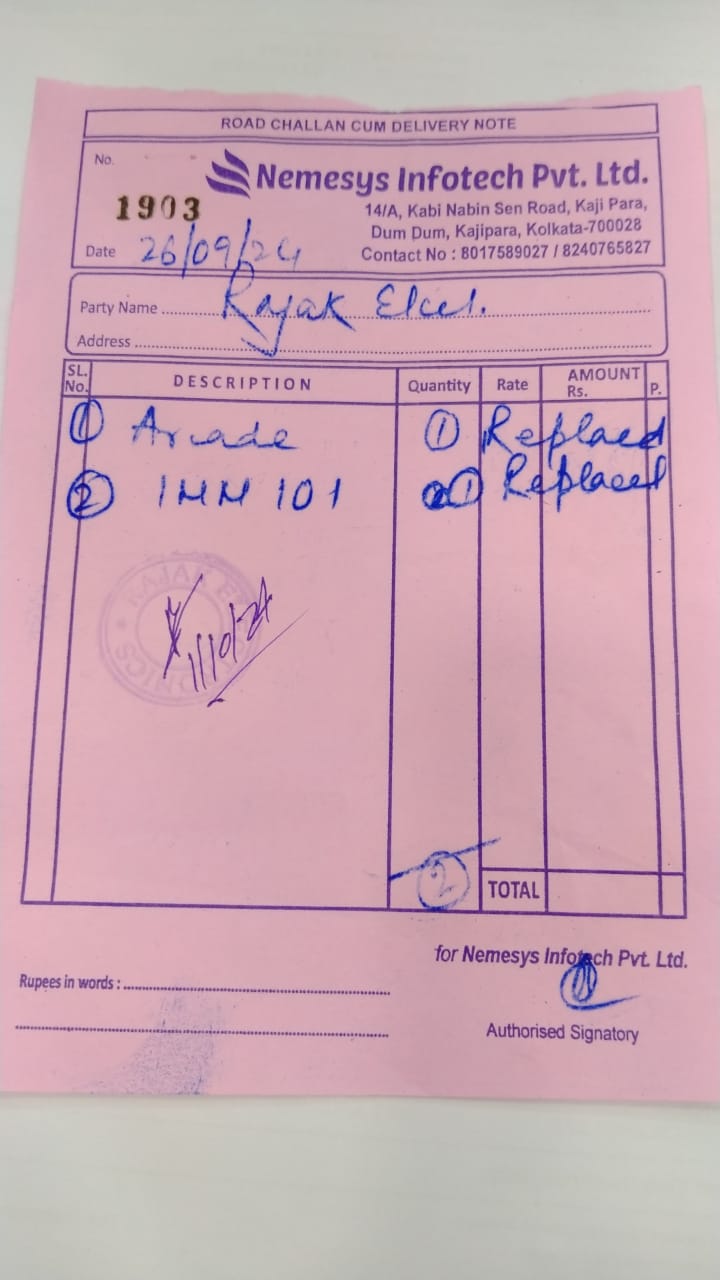 ROAD CHALLAN CUM DELIVERY NOTE
No.
1903
Nemesys Infotech Pvt. Ltd.
14/A, Kabi Nabin Sen Road, Kaji Para,
Dum Dum, Kajipara, Kolkata-700028
Contact No : 8017589027 / 8240765827
Date 26/09/24
Party Name Rajak Elcel.
Address
SL. No. DESCRIPTION Quantity Rate AMOUNT Rs. P.
1 Arcade 1 Replaced
2 IMM 101 1 Replaced
RAJAK
1/10/24
2 TOTAL
for Nemesys Infotech Pvt. Ltd.
Rupees in words :
Authorised Signatory